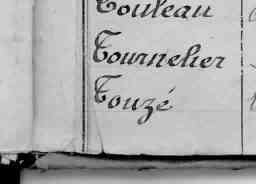 Touleau
Tournelier
Touzé